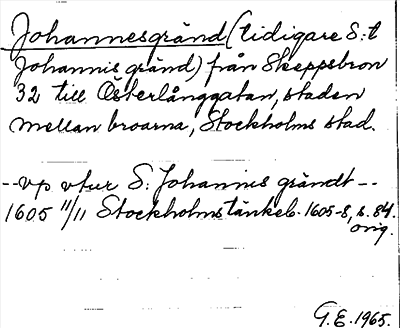 Johannesgränd (tidigare S:t
Johannis gränd) från Skeppsbron
32 till Österlånggatan, staden
mellan broarna, Stockholms stad.
--vp vtur S. Johannis grändt --
1605 11/11 Stockholms tänkeb. 1605-8, s. 84.
orig.
G.E. 1965.